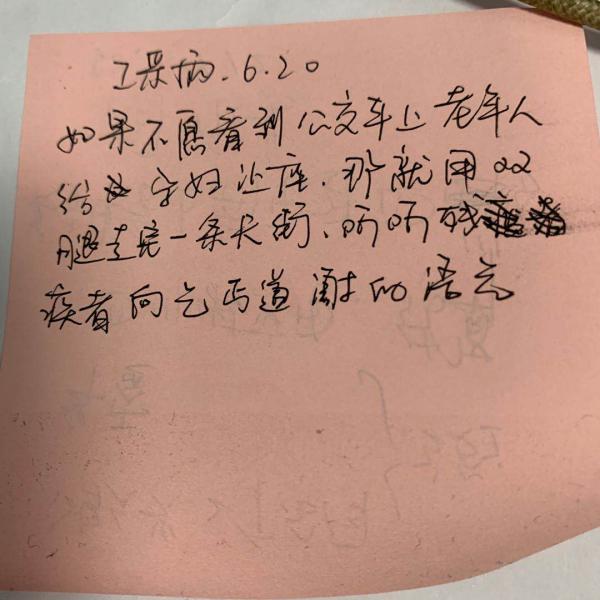 工景病.6.20
如果不愿看到公交车上老年人
给孕妇让座.那就用双
腿走完一条长街、听听残
疾者向乞丐道谢的语言